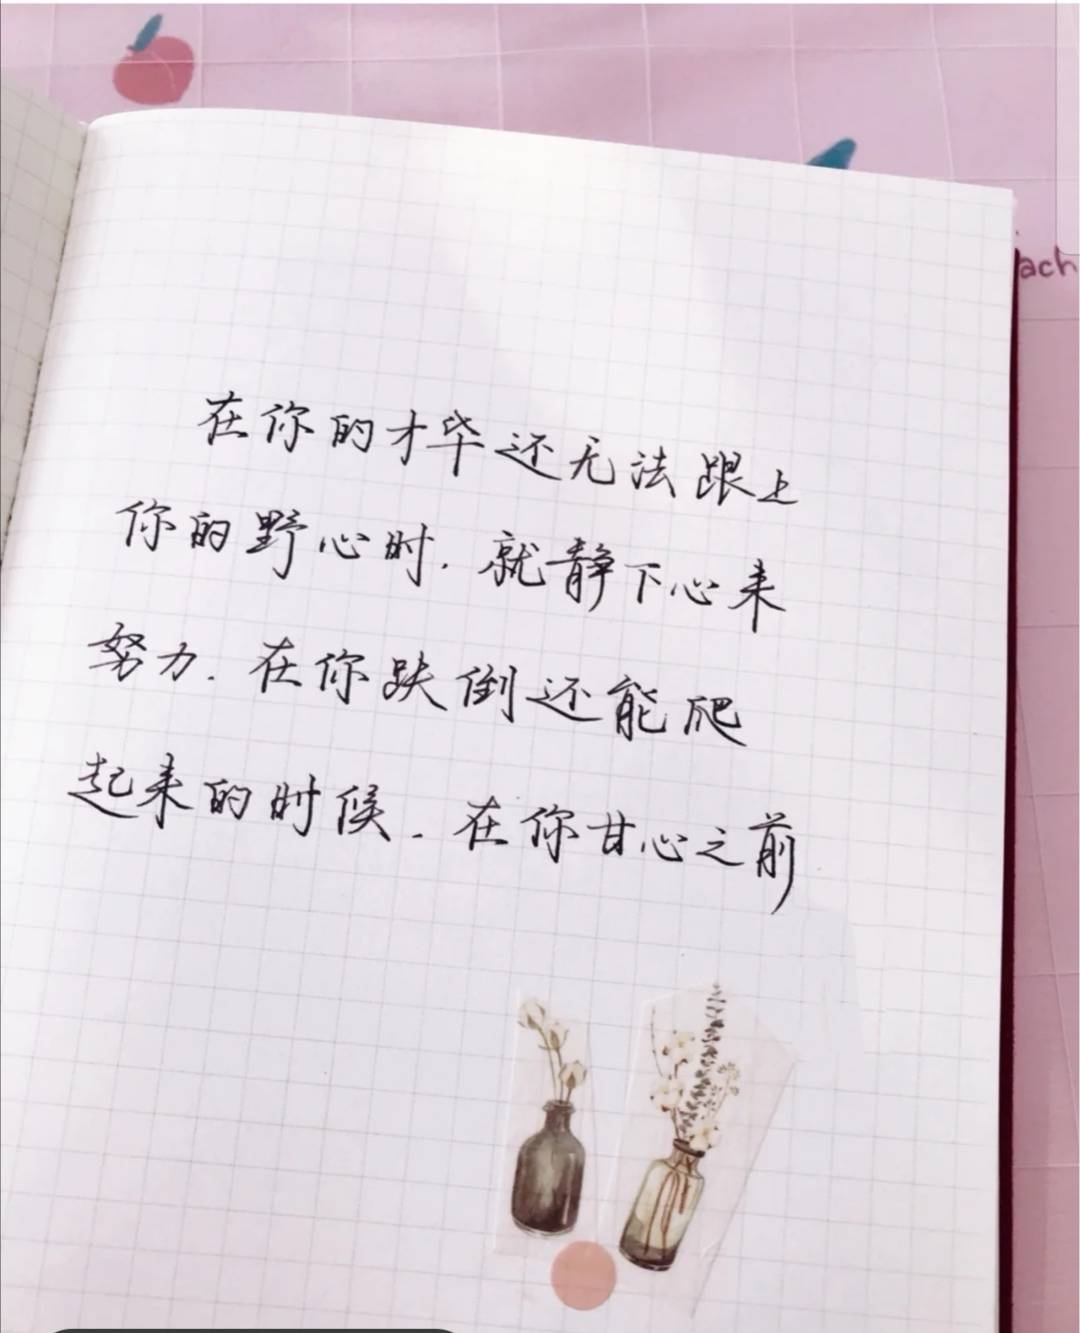 在你的才华还无法跟上
你的野心时.就静下心来
努力.在你跌倒还能爬
起来的时候.在你甘心之前
ach